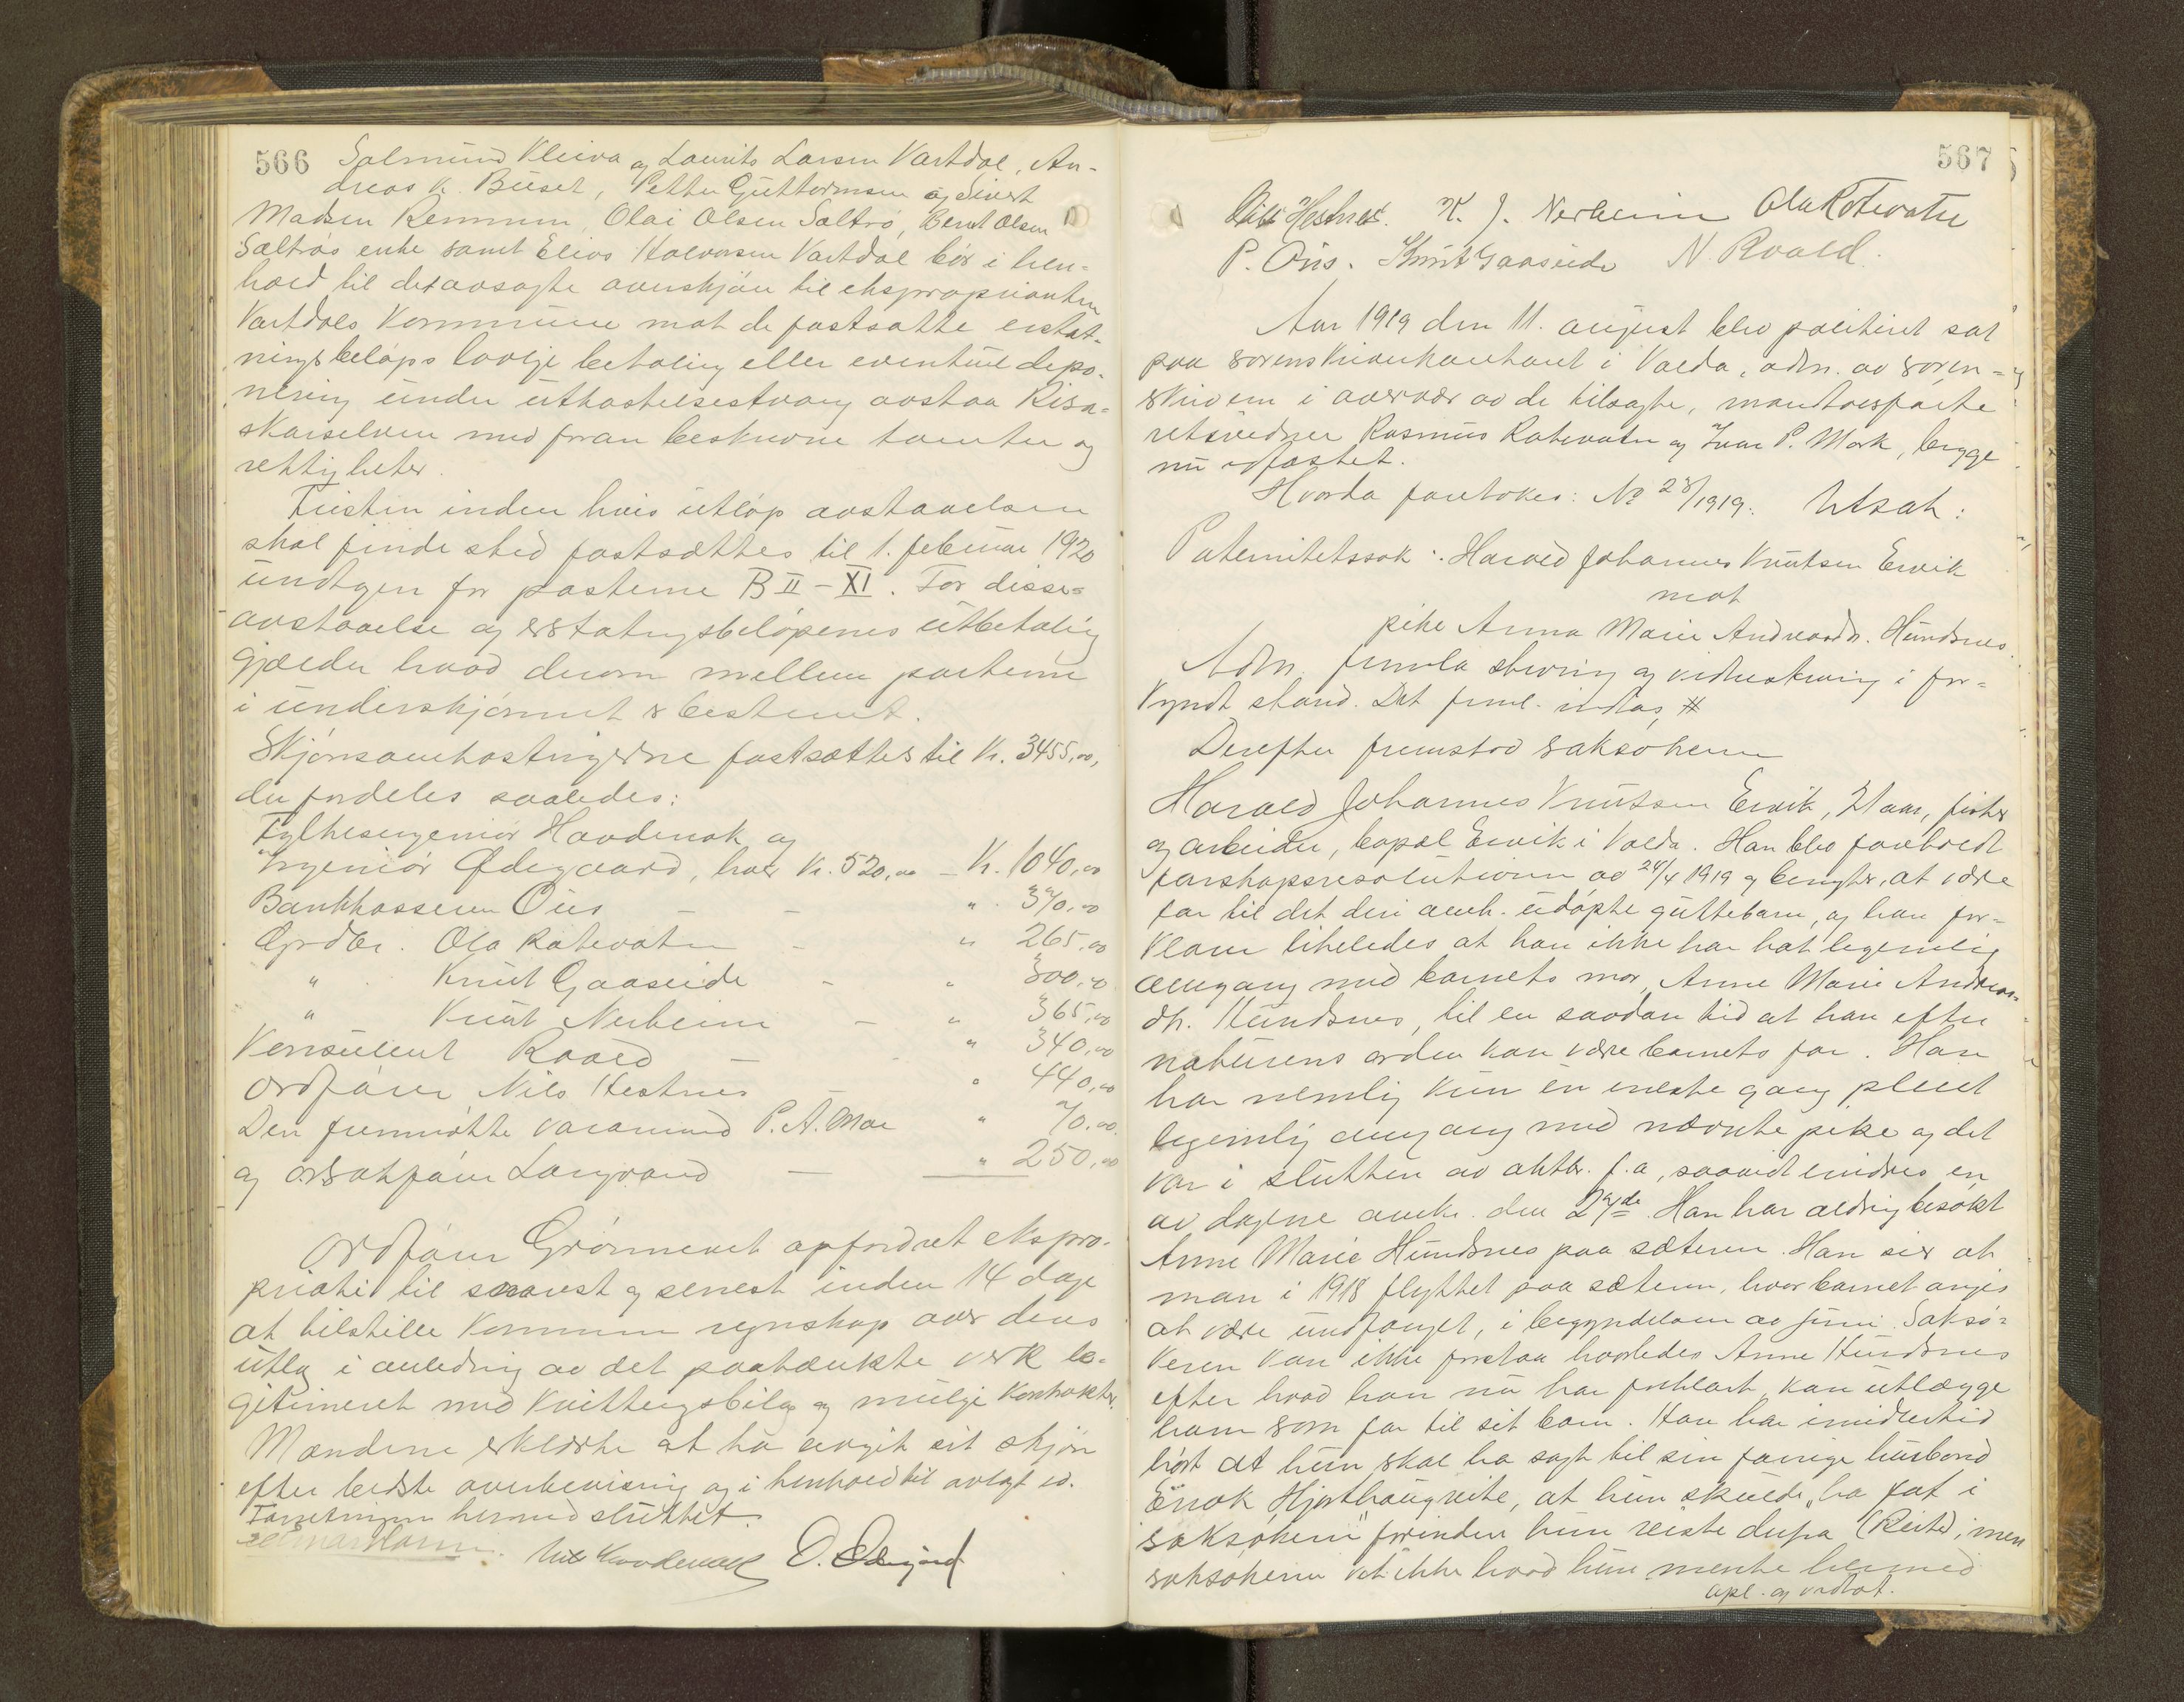 566
Salmund Kleiva og Laurits Larsen Vartdal, An-
dreas K. Buset, Petter Guttormsen og Sivert
Madsen Remmem, Olai Olsen Saltrø, Bernt Olsen
Saltrøs enke samt Elias Halvorsen Vartdal bør i hen-
hold til det avsagte overskjøn til ekspropriantin
Vartdals Kommune mot de fastsatte erstat-
ningsbeløps lovlige betaling eller eventuel depo-
nering under utkastelsestvang avstaa Risa-
skarselven med foran beskrevne tomter og
rettigheter.
Fristen inden hvis utløp avstaaelsen
skal finde sted fastsættes til 1. februar 1920
undtagen for posterne B II - XI. For disses
avstaaelse og erstatningsbeløpenes utbetaling
gjælder hvad derom mellem parterne
i underskjønnet er bestemt.
Skjønsomkostningerne fastsættes til Kr. 3455,00,
der fordeles saaledes:
Fylkesingeniør Hovdenak og
Ingeniør Ødegaard, hver Kr. 520,00 - Kr. 1040,00
Bankkasserer Øus - - " 370,00
Grdbr. Ola Rotevatn - " 265,00
" Knut Gaaseide - " 300,00
" Knut Nerheim - " 365,00
Konsulent Roald - " 340,00
Ordfører Nils Hestnes - " 440,00
Den fremmøtte varamand P. A. Moe " 70,00
og Orsakfører Langvand - " 250,00
Ordfører Grønnevet opfordret ekspro-
priati til snarest og senest inden 14 dage
at tilstille Kommunen regnskap over dens
utlæg i anledning av det paatænkte verk le-
gitimeret med Kvitteringsbilag og mulige Kontrakter.
Mændene erklærte at ha avgit sit skjøn
efter bedste overbevisning og i henhold til avlagt ed.
Forretningen hermed sluttet.
Nils Hovdenak O. Ødegaard
567
Nils Hestnes. K. J. Nerheim Ola Rotevatn
P. Øus. Knut Gaaseide N. Roald.
Aar 1919 den 11. august blev politiret sat
paa sorenskriverkontoret i Volda, adm. av soren-
skriveren i overvær av de tilsagte, mandtalsførte
retsvidner Rasmus Rotevatn og Ivar P. Mork, begge
nu edfæstet.
Hvorda foretokes: No 28/1919. Utsat:
Paternitetssak: Harald Johannes Knutsen Ervik
mot
pike Anna Marie Andreasdr. Hundsnes.
Adm. fremla stevning og vidnestevning i for-
kyndt stand. Det freml. indtas #
Derefter fremstod saksøkeren
Harald Johannes Knutsen Ervik, 21 aar, fisker
og arbeider, bopæl Ervik i Volda. Han blev foreholdt
farskapsresolutionen av 24/4 1919 og benegter, at være
far til det deri omh. udøpte guttebarn, og han for-
klarer likeledes at han ikke har hat legemlig
omgang med barnets mor, Anne Marie Andreas-
dtr. Hundsnes, til en saadan tid at han efter
naturens orden kan være barnets far. Han
har nemlig kun én eneste gang pleiet
legemlig omgang med nævnte pike og det
var i slutten av oktbr. f.a, saavidt erindres en
av dagene omkr. den 27de. Han har aldrig besøkt
Anne Marie Hundsnes paa sæteren. Han sier at
man i 1918 flyttet paa sæteren, hvor barnet angis
at være undfanget, i begyndelsen av juni. Saksø-
keren kan ikke forstaa hvorledes Anne Hundsnes
efter hvad han nu har forklart, kan utlægge
ham som far til sit barn. Han har imidlertid
hørt at hun skal ha sagt til sin forrige husbond
Enok Hjorthaugreite, at hun skulde "ha fat i
saksøkeren" forinden hun reiste derfra (Reite), men
saksøkeren vet ikke hvad hun mente hermed
opl. og vedtat.